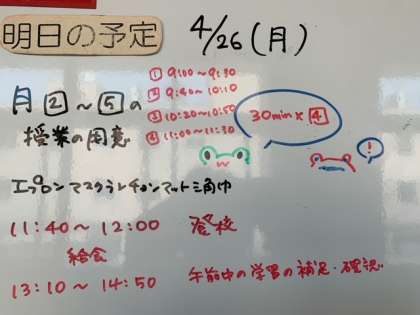 明日の予定
4/26(月)
① 9:00～9:30
② 9:40～10:10
③ 10:20～10:50
④ 11:00～11:30
月 2～5の
授業の用意
30min×4
!
エプロン マスク ランチョンマット 三角巾
11:40～12:00 登校
給食
13:10～14:50 午前中の学習の補足・確認